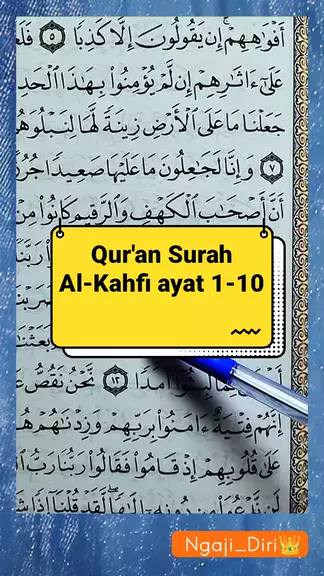 أَفْوَٰهِهِمْ ۚ إِن يَقُولُونَ إِلَّا كَذِبًا ٥
عَلَىٰٓ ءَاثَٰرِهِمْ إِن لَّمْ يُؤْمِنُوا۟ بِهَٰذَا
جَعَلْنَا مَا عَلَى ٱلْأَرْضِ زِينَةً لَّهَا لِنَبْلُوَهُمْ
٧ وَإِنَّا لَجَٰعِلُونَ مَا عَلَيْهَا صَعِيدًا
أَنَّ أَصْحَٰبَ ٱلْكَهْفِ وَٱلرَّقِيمِ كَانُوا۟ مِنْ
Qur'an Surah
Al-Kahfi ayat 1-10
أَمَدًا ١٢ نَّحْنُ نَقُصُّ
إِنَّهُمْ فِتْيَةٌ ءَامَنُوا۟ بِرَبِّهِمْ وَزِدْنَٰهُمْ
عَلَىٰ قُلُوبِهِمْ إِذْ قَامُوا۟ فَقَالُوا۟ رَبُّنَا رَبُّ
لَن نَّدْعُوَا۟ مِن دُونِهِۦٓ إِلَٰهًا ۖ لَّقَدْ قُلْنَآ إِذًا
Ngaji_Diri